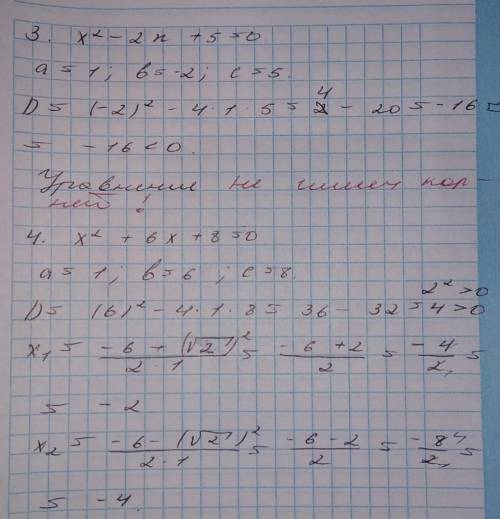 3. x² - 2x + 5 = 0
a = 1; b = -2; c = 5.
D = (-2)² - 4·1·5 = 4 - 20 = -16 =
= -16 < 0.
Уравнение не имеет кор-
ней!
4. x² + 6x + 8 = 0
a = 1; b = 6; c = 8.
2² > 0
D = (6)² - 4·1·8 = 36 - 32 = 4 > 0
x₁ = (-6 + (√2)²)/(2·1) = (-6 + 2)/2 = -4/2 =
= -2
x₂ = (-6 - (√2)²)/(2·1) = (-6 - 2)/2 = -8/2 =
= -4.